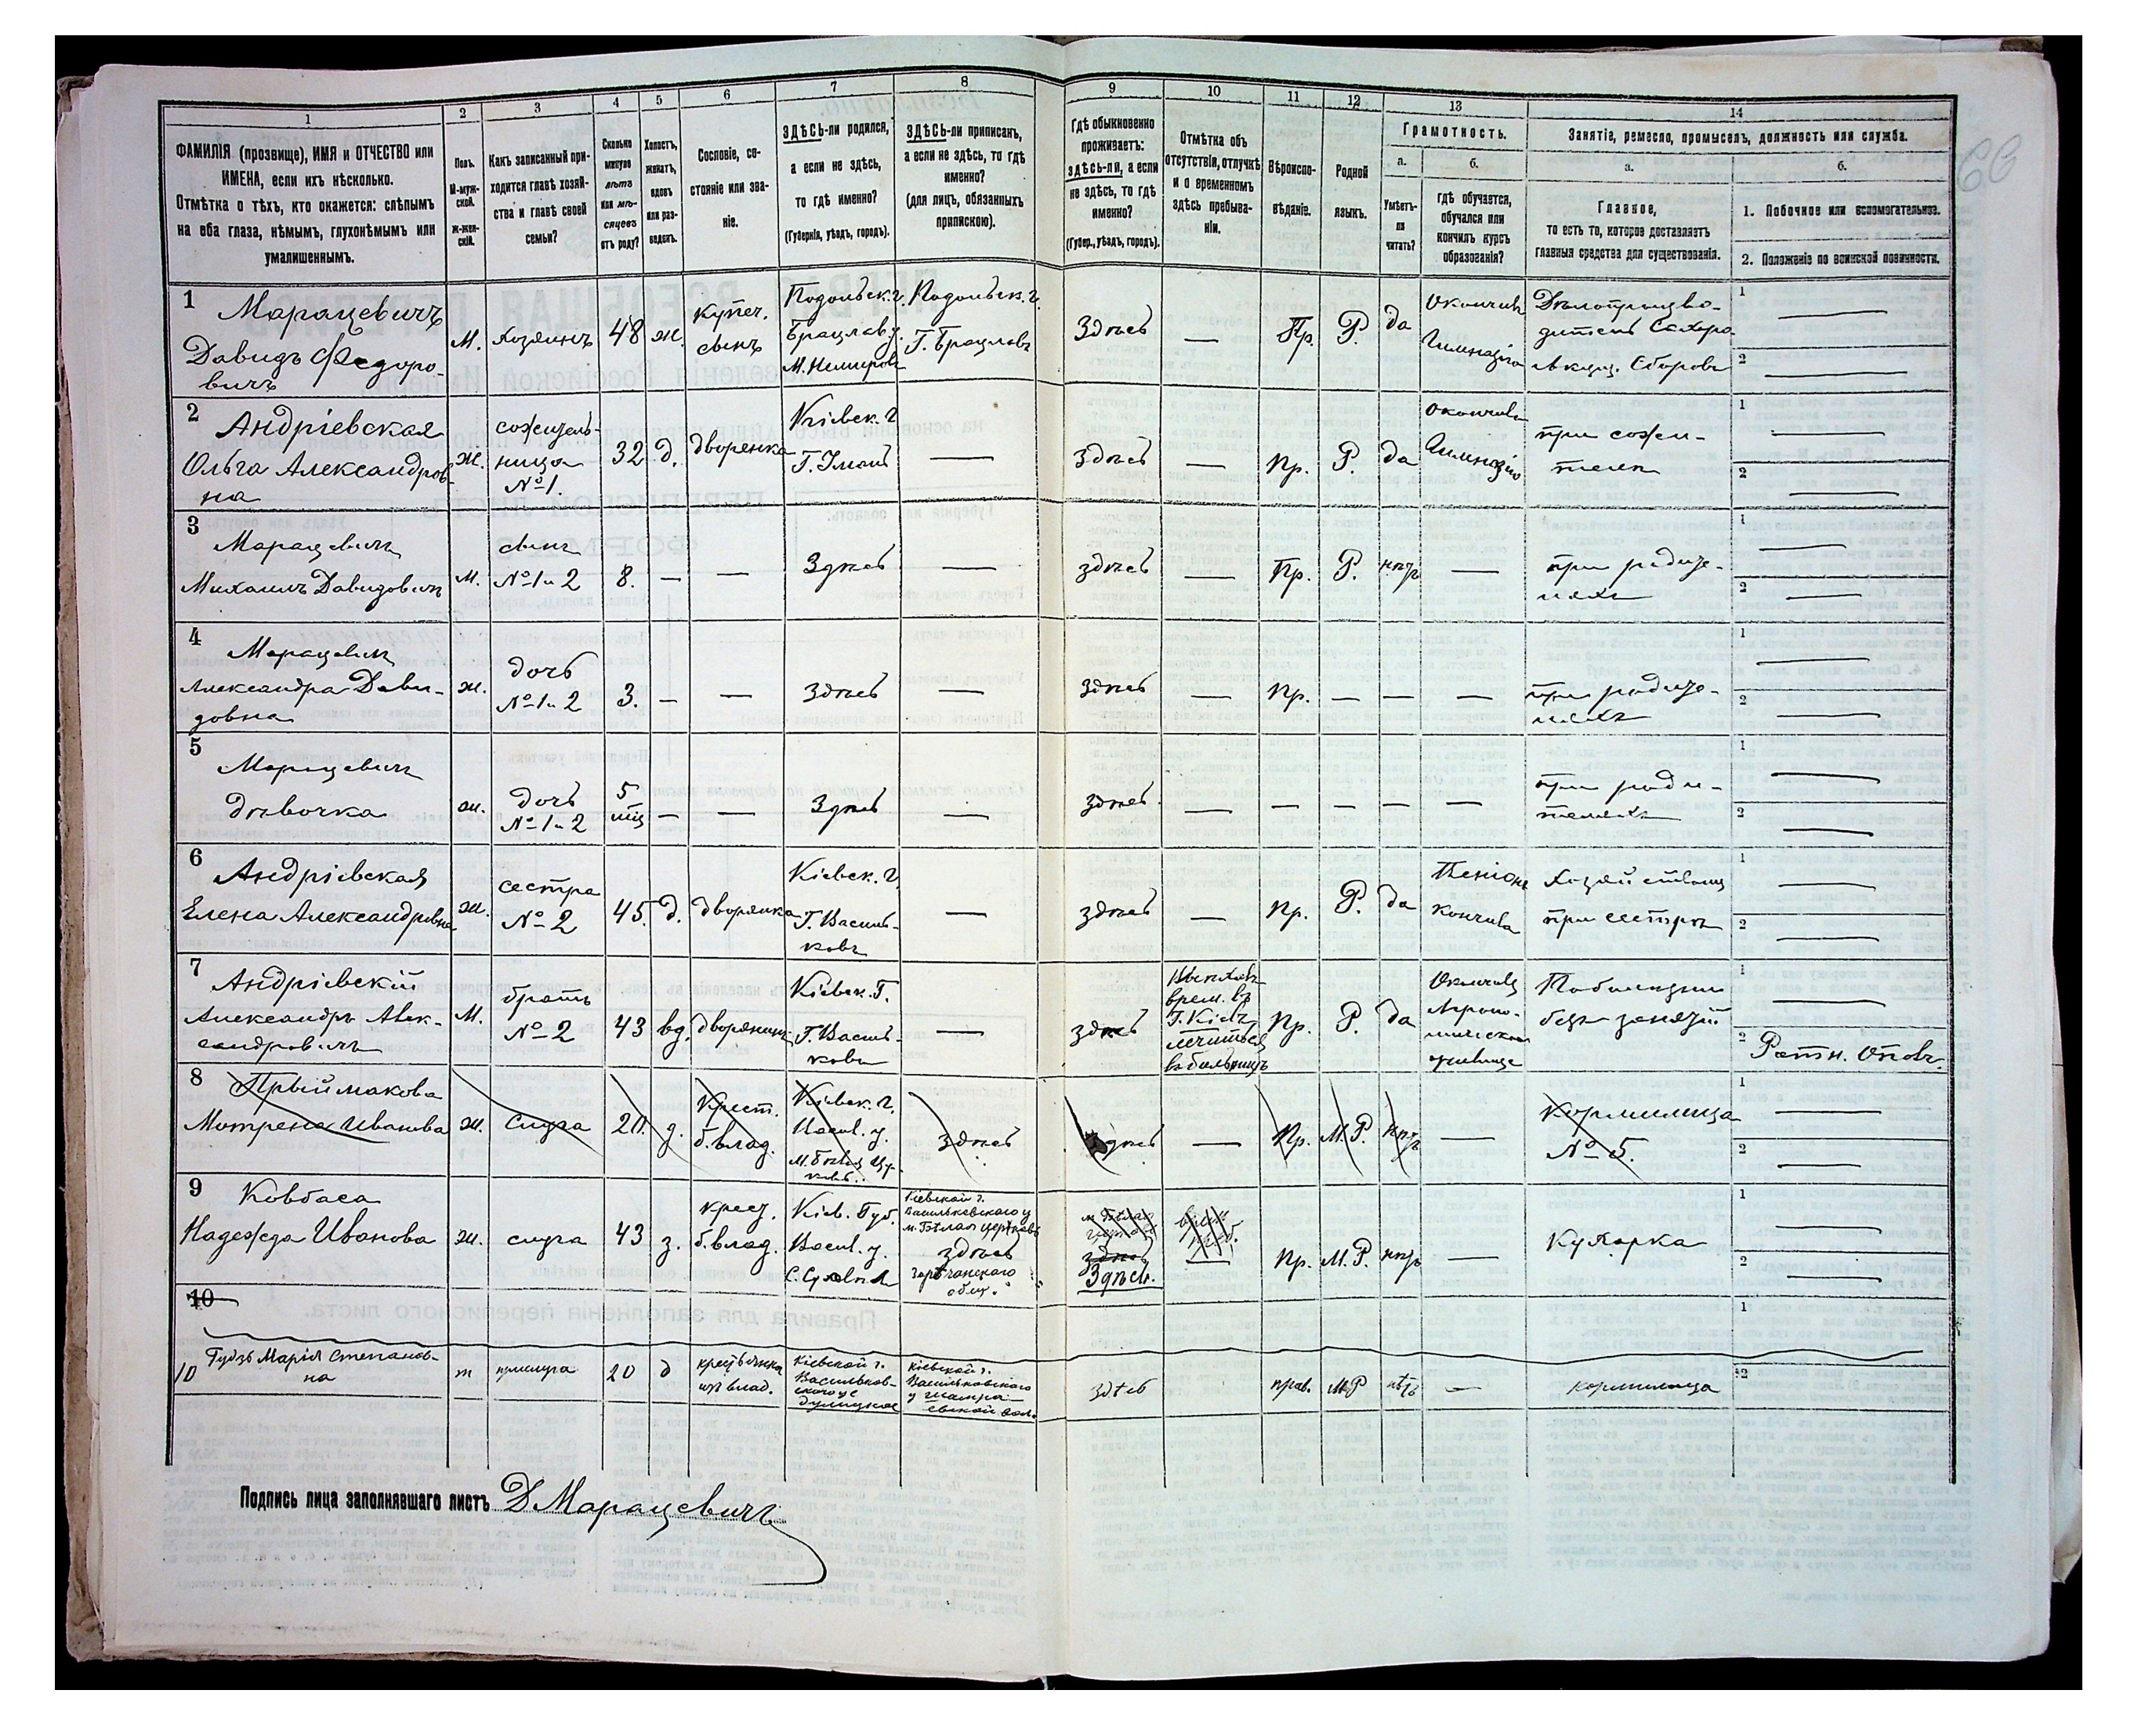 1
2
3
4
5
6
7
8
9
10
11
12
13
14
ФАМИЛІЯ (прозвище), ИМЯ и ОТЧЕСТВО или
ИМЕНА, если ихъ нѣсколько.
Отмѣтка о тѣхъ, кто окажется: слѣпымъ
на оба глаза, нѣмымъ, глухонѣмымъ или
умалишеннымъ.
Полъ.
М-муж-
ской.
Ж-жен-
скій.
Какъ записанный при-
ходится главѣ хозяй-
ства и главѣ своей
семьи?
Сколько
минуло
лѣтъ
или мѣ-
сяцевъ
отъ роду?
Холостъ,
женатъ,
вдовъ
или раз-
веденъ.
Сословіе, со-
стояніе или зва-
ніе.
ЗДѢСЬ-ли родился,
а если не здѣсь,
то гдѣ именно?
(Губернія, уѣздъ, городъ).
ЗДѢСЬ-ли приписанъ,
а если не здѣсь, то гдѣ
именно?
(для лицъ, обязанныхъ
припискою).
Гдѣ обыкновенно
проживаетъ:
здѣсь-ли, а если
не здѣсь, то гдѣ
именно?
(Губер., уѣздъ, городъ).
Отмѣтка объ
отсутствіи, отлучкѣ
и о временномъ
здѣсь пребыва-
ніи.
Вѣроиспо-
вѣданіе.
Родной
языкъ.
Грамотность.
а.
б.
Умѣетъ-
ли
читать?
гдѣ обучается,
обучался или
кончилъ курсъ
образованія?
Занятіе, ремесло, промыселъ, должность или служба.
а.
б.
Главное,
то есть то, которое доставляетъ
главныя средства для существованія.
1. Побочное или вспомогательное.
2. Положеніе по воинской повинности.
66
1
Марацевичъ
Давидъ Федоро-
вичъ
М.
Хозяинъ
48
ж.
купеч.
сынъ
Подольск. г.
Брацлав. у.
М. Немировъ
Подольск. г.
Г. Брацлавъ
Здѣсь
—
Пр.
Р.
да
Окончилъ
Гимназію
Дѣлопроизво-
дитель Сахаро
Акциз. Сборовъ
1 —
2 —
2
Андріевская
Ольга Александров-
на
ж.
сожитель-
ница
№ 1.
32
д.
дворянка
Кіевск. г
Г. Умань
—
здѣсь
—
Пр.
Р.
да
окончила
Гимназію
при сожи-
теле
1 —
2 —
3
Марацевичъ
Михаилъ Давидовичъ
М.
сынъ
№ 1 и 2
8.
—
—
Здѣсь
—
здѣсь
—
Пр.
Р.
нѣтъ
—
при родите-
ляхъ
1 —
2 —
4
Марацевичъ
Александра Дави-
довна
ж.
дочь
№ 1 и 2
3.
—
—
здѣсь
—
здѣсь
—
Пр.
—
—
—
при родите-
ляхъ
1 —
2 —
5
Марацевичъ
Дѣвочка
ж.
дочь
№ 1 и 2
5
мѣс
—
—
Здѣсь
—
здѣсь
—
—
—
—
—
при роди-
теляхъ
1 —
2 —
6
Андріевская
Елена Александровна
ж.
сестра
№ 2
45.
д.
дворянка
Кіевск. г.
Г. Василь-
ковъ
—
здѣсь
—
Пр.
Р.
да
Пансіонъ
кончила
при сестрѣ
1 —
2 —
7
Андріевскій
Александръ Алек-
сандровичъ
М.
братъ
№ 2
43
вд.
дворянинъ
Кіевск. Г.
Г. Василь-
ковъ
—
здѣсь
Выѣхалъ
врем. въ
Г. Кіевъ
лечиться
въ больницѣ
Пр.
Р.
да
Окончилъ
Агроно-
мическое
училище
По болѣзни
безъ занятій
1 —
2 Ратн. Опов.
8
Прыймакова
Матрена Иванова
ж.
слуга
20.
д.
Крест.
б. влад.
Кіевск. г.
Васил. у.
М. Бѣлая Цер-
ковь.
здѣсь
здѣсь
—
Пр.
М.Р.
нѣтъ
—
Кормилица
№ 5.
1 —
2 —
9
Ковбаса
Надежда Иванова
ж.
слуга
43
з.
крест.
б. влад.
Кіев. Губ.
Васил. у.
Кіевской г.
Васильковскаго у
м. Бѣлая церковь
здѣсь
Зарѣчанскаго
общ.
м. Бѣлая
церковь
здѣсь
Здѣсь.
—
Пр.
М.Р.
нѣтъ
—
Кухарка
1 —
2 —
10
10
Гудзь Марія Степанов-
на
20
д
крестьянка
изъ влад.
Кіевской г.
Васильков-
скаго уе
Кіевской г.
Васильковскаго
здѣсь
прав.
М.Р
нѣтъ
—
кормилица
1
2
Подпись лица заполнявшаго листъ Д Марацевичъ